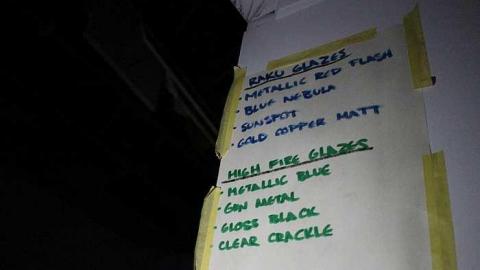 RAKU GLAZES
· METALLIC RED FLASH
· BLUE NEBULA
· SUNSPOT
· GOLD COPPER MATT
HIGH FIRE GLAZES
· METALLIC BLUE
· GUN METAL
· GLOSS BLACK
· CLEAR CRACKLE